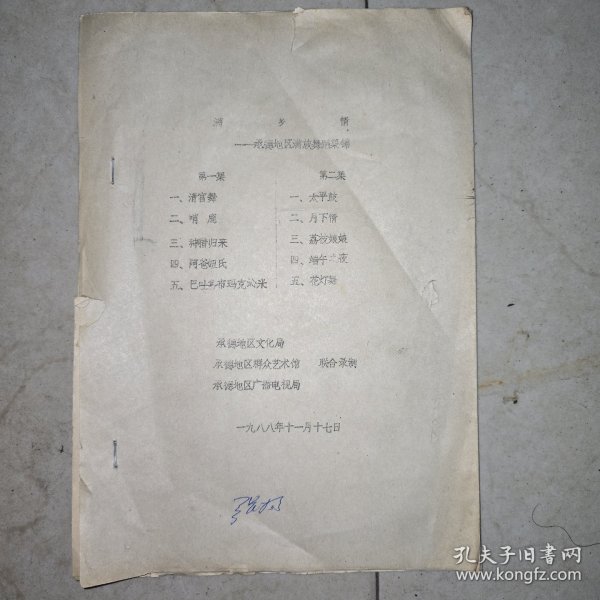 满乡情
——承德地区满族舞蹈集锦
第一集 第二集
一、清宫舞 一、太平鼓
二、哨鹿 二、月下情
三、神猎归来 三、荔枝娘娘
四、阿爸 四、端午之夜
五、巴吐 玛克沁米 五、花灯舞
承德地区文化局
承德地区群众艺术馆 联合录制
承德地区广播电视局
一九八八年十一月十七日
孔夫子旧书网
www.kongfz.com